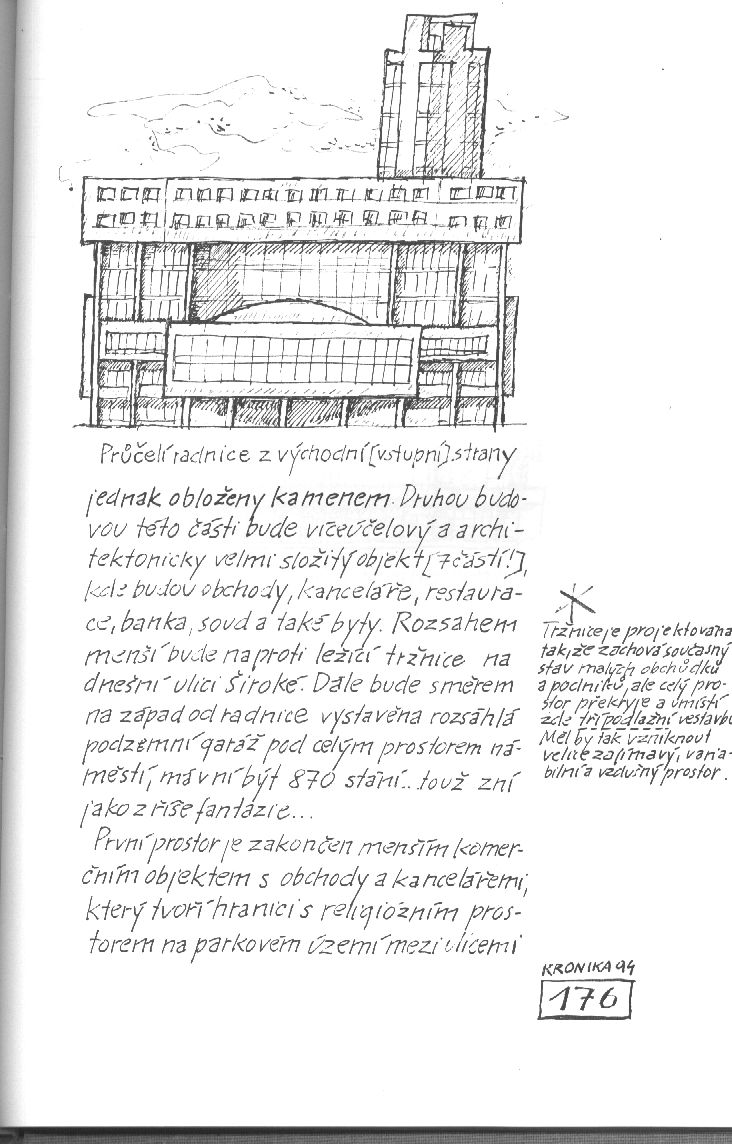 Průčelí radnice z východní [vstupní] strany
jednak obloženy kamenem. Druhou budo-
vou této části bude víceúčelový a archi-
tektonicky velmi složitý objekt [7 částí!],
kde budou obchody, kanceláře, restaura-
ce, banka, soud a také byty. Rozsahem
menší bude naproti ležící tržnice na
dnešní ulici Široké. Dále bude směrem
na západ od radnice vystavěna rozsáhlá
podzemní garáž pod celým prostorem ná-
městí, má v ní být 870 stání.. touž zní
jako z říše fantázie...
První prostor je zakončen menším komer-
čním objektem s obchody a kancelářemi,
který tvoří hranici s religiózním pros-
torem na parkovém území mezi ulicemi
Tržnice je projektována
tak, že zachová současný
stav malých obchůdků
a podniků, ale celý pro-
stor překryje a umístí
zde třípodlažní vestavbu
Měl by tak vzniknout
velice zajímavý, varia-
bilní a vzdušný prostor.
KRONIKA 94
176